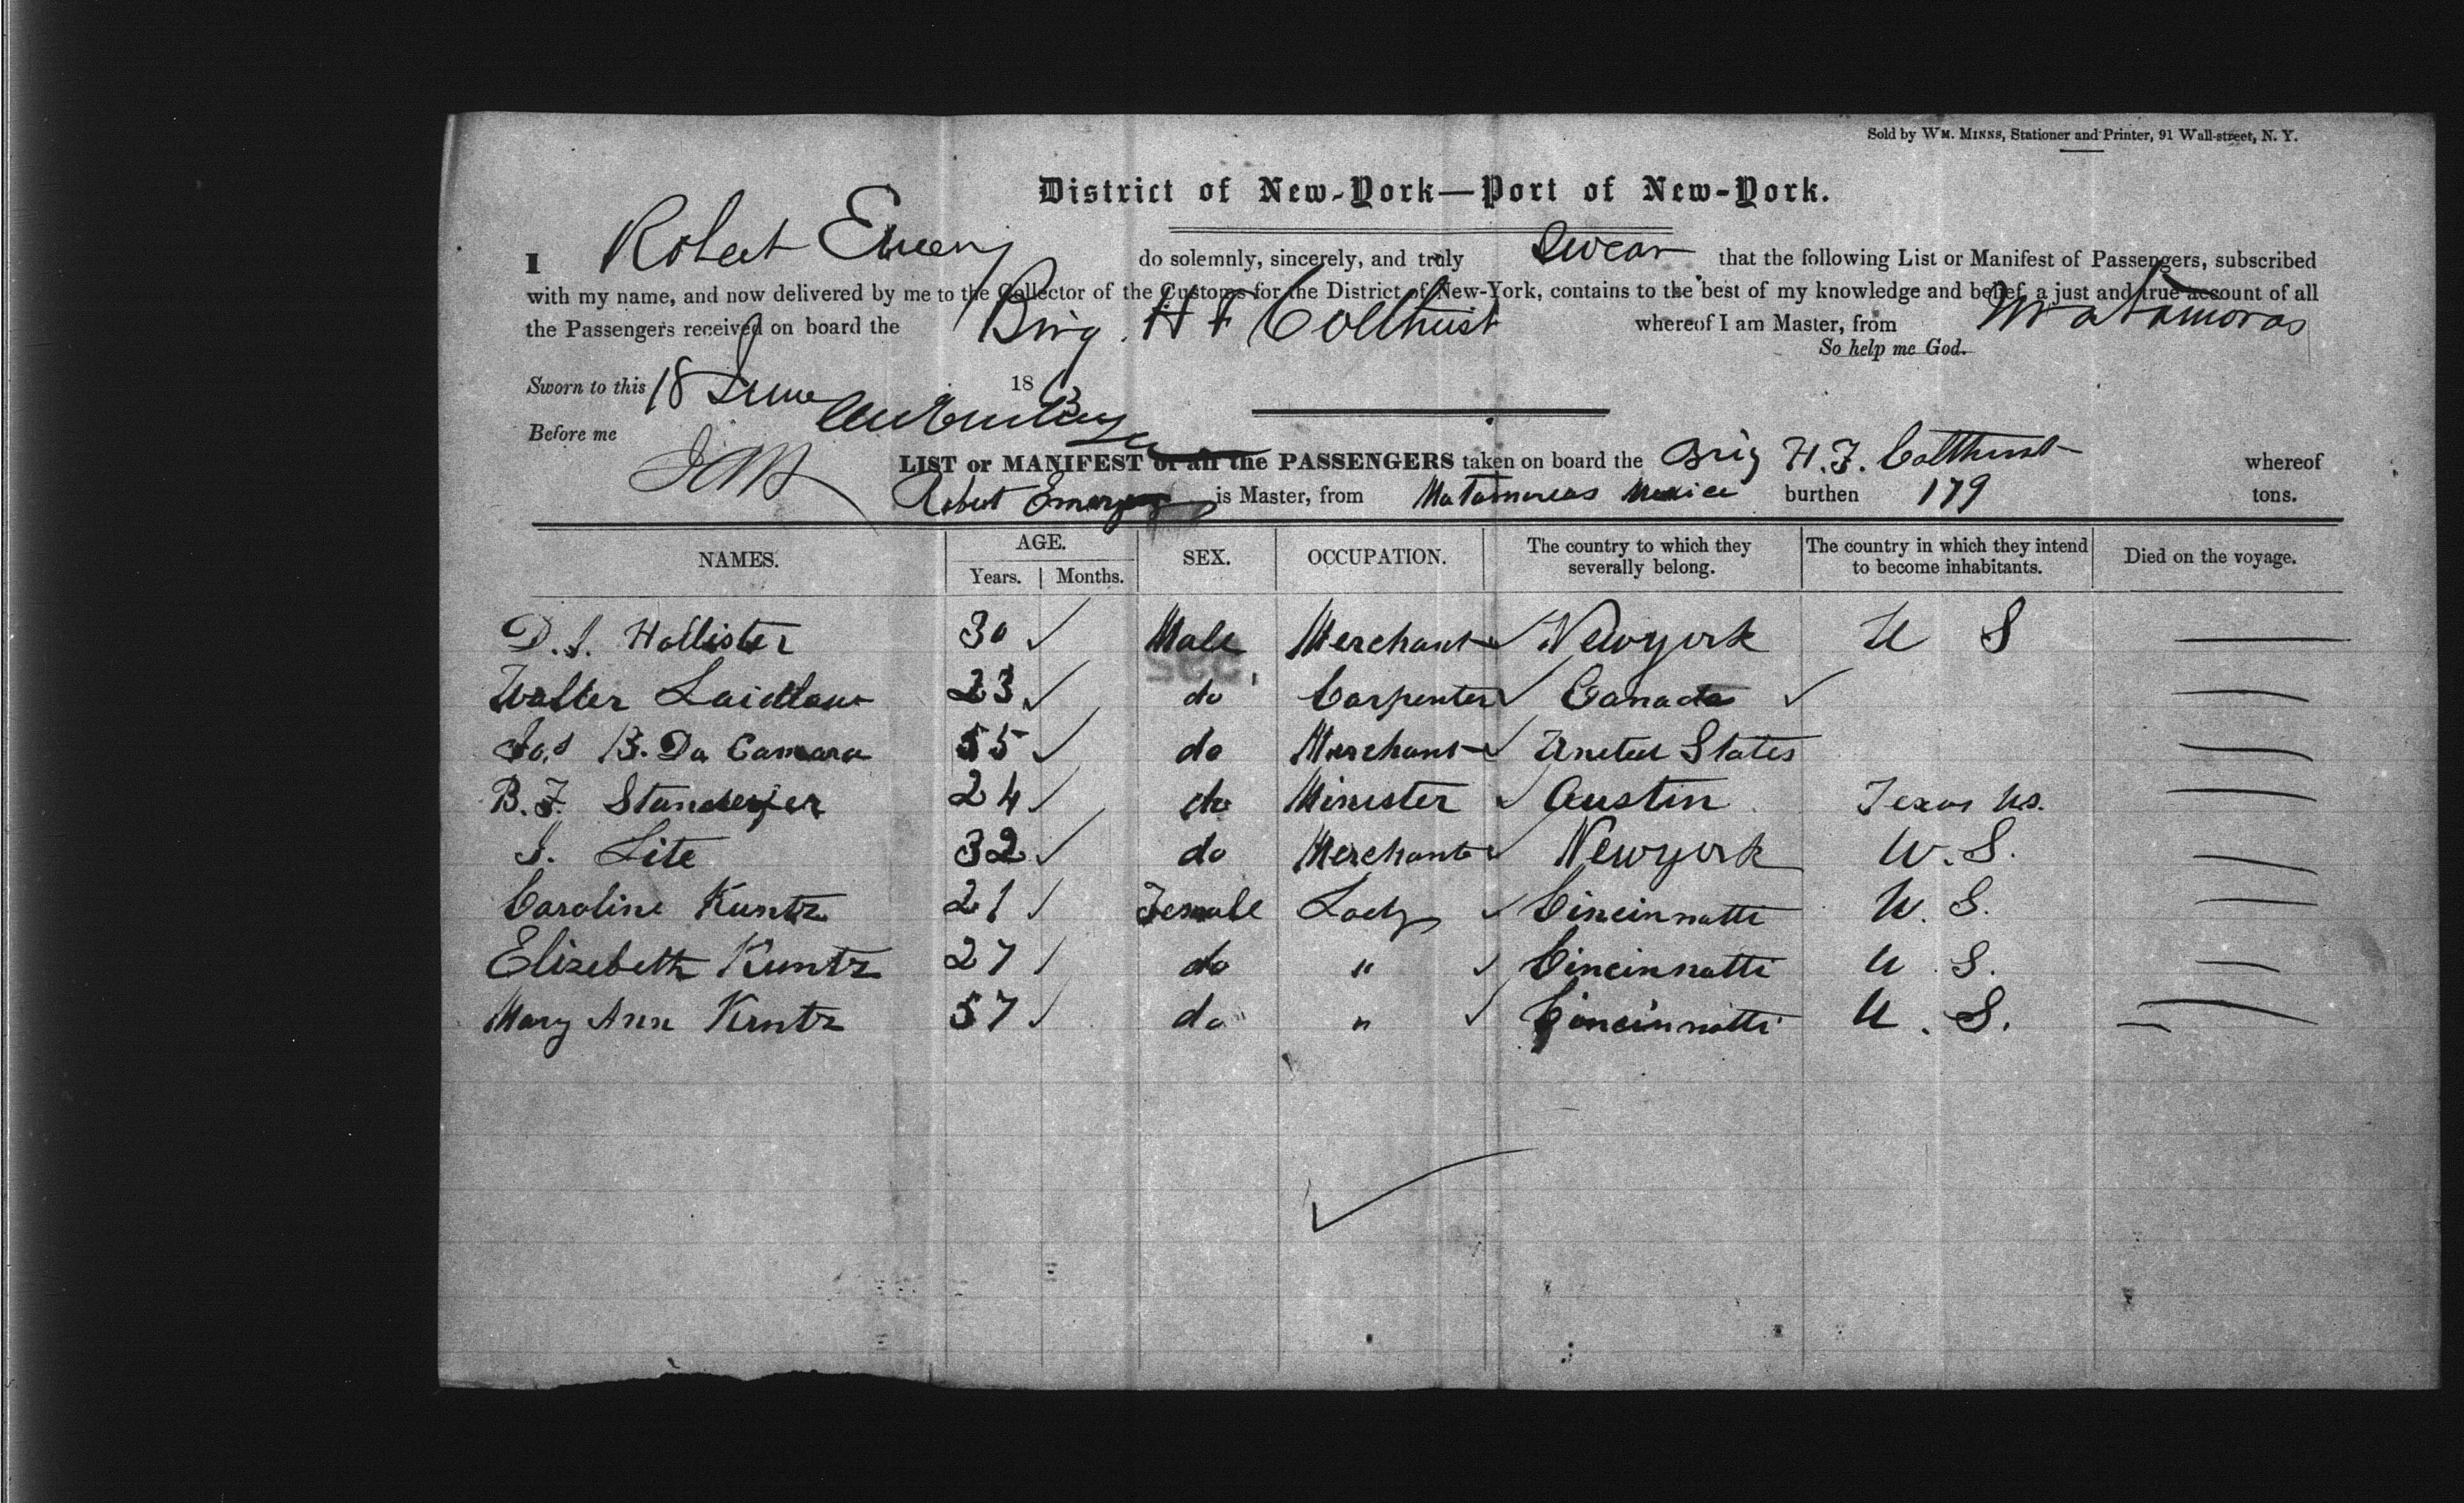 Sold by WM. MINNS, Stationer and Printer, 91 Wall-street, N. Y.
District of New-York—Port of New-York.
I Robert Emery do solemnly, sincerely, and truly Swear that the following List or Manifest of Passengers, subscribed
with my name, and now delivered by me to the Collector of the Customs for the District of New-York, contains to the best of my knowledge and belief, a just and true account of all
the Passengers received on board the Brig. H F Colthirst whereof I am Master, from Matamoras
So help me God.
Sworn to this 18 June 1863
Before me
LIST or MANIFEST of all the PASSENGERS taken on board the Brig H. F. Colthirst whereof
Robert Emery is Master, from Matamoreas Mexico burthen 179 tons.
NAMES. AGE. SEX. OCCUPATION. The country to which they severally belong. The country in which they intend to become inhabitants. Died on the voyage.
Years. Months.
D. I. Hollister 30 Male Merchant Newyork U S
Walter Laidlaw 23 do Carpenter Canada
Jos B. Da Camara 55 do Merchant United States
B. F. Standerfer 24 do Minister Austin Texas US.
I. Lite 32 do Merchant Newyork U. S.
Caroline Kuntz 21 Female Lady Cincinnatti U. S.
Elizebeth Kuntz 27 do " Cincinnatti U. S.
Mary Ann Kuntz 57 do " Cincinnatti U. S.